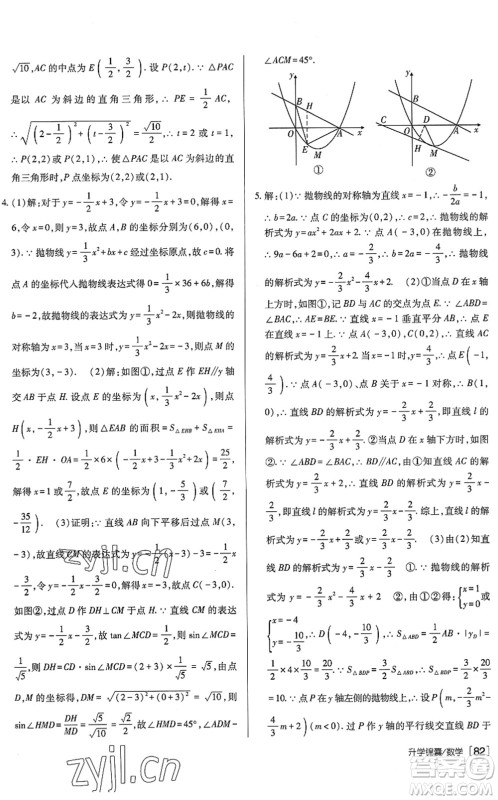 √10,AC的中点为E(1/2,3/2).设P(2,t).∵△PAC
是以AC为斜边的直角三角形,∴PE=1/2AC.
∴√((2-1/2)²+(t-3/2)²)=√10/2.∴t=2或t=
1.∴P(2,2)或P(2,1).∴使△PAC为斜边的直
角三角形时,P点坐标为(2,2)或(2,1).
4.(1)解:对于y=-1/2x+3,令y=-1/2x+3=0,则x=
6,令x=0,则y=3.故点A,B的坐标分别为(6,0),(3,
0).∵抛物线y=1/3x²+bx+c经过坐标原点,故c=0.将
点A的坐标代入抛物线表达式得0=1/3×36+6b,解得
b=-2,故抛物线的表达式为y=1/3x²-2x.则抛物线的
对称轴为x=3,当x=3时,y=1/3x²-2x=-3,则点M的
坐标为(3,-3).(2)解:如图①,过点E作EH//y轴
交AB于点H.设点E的坐标为(x,1/3x²-2x),则点
H(x,-1/2x+3),则△EAB的面积=S△EHB+S△EHA=
1/2·EH·OA=1/2×6×(-1/2x+3-1/3x²+2x)=25/2.
解得x=1或7/2,故点E的坐标为(1,-5/3)或(7/2,
-35/12).(3)证明:∵直线AB向下平移后过点M(3,
-3),故直线CM的表达式为y=-1/2(x-3)-3=-1/2
x-3/2.令y=-1/2x-3/2=0,解得x=-3.故点C(-3,0).
如图②,过点D作DH⊥CM于点H.∵直线CM的表达
式为y=-1/2x-3/2,故tan∠MCD=1/2,则sin∠MCD=
1/√5,则DH=CD·sin∠MCD=(2+3)×1/√5=√5.由点
D,M的坐标得,DM=√((2-3)²+(0+3)²)=√10,则
sin∠HMD=DH/MD=√5/√10=√2/2,故∠HMD=45°,∠ADM-
∠ACM=45°.
y
B
H
O
A
x
E
M
①
y
B
C
O
D
A
x
H
M
②
5.解:(1)∵抛物线的对称轴为直线x=-1,∴-b/2a=-1.
∴b=2a.∵点C的坐标为(0,2),∴c=2,∴抛物线的解
析式为y=ax²+2ax+2.∵点A(-3,0)在抛物线上,
∴9a-6a+2=0,∴a=-2/3.∴b=2a=-4/3,∴抛物线
的解析式为y=-2/3x²-4/3x+2.(2)①当点D在x轴
上方时,如图①,记BD与AC的交点为点E.∵∠ABD=
∠BAC,∴AE=BE.∵直线x=-1垂直平分AB,∴点E
在直线x=-1上.∵点A(-3,0),C(0,2),∴直线AC
的解析式为y=2/3x+2.当x=-1时,y=4/3,∴点E(-1,
4/3).∵点A(-3,0)点B关于x=-1对称,∴B(1,
0),∴直线BD的解析式为y=-2/3x+2/3,即直线l的
解析式为y=-2/3x+2/3.②当点D在x轴下方时,如图
②.∵∠ABD=∠BAC,∴BD//AC.由①知,直线AC的
解析式为y=2/3x+2.∵点B(1,0),∴直线BD的解析式
为y=2/3x-2/3,即直线l的解析式为y=2/3x-2/3.综上,直线l的
解析式为y=-2/3x+2/3或y=2/3x-2/3.(3)由(2)②知,直
线BD的解析式为y=2/3x-2/3①.∵抛物线的解析式为
y=-2/3x²-4/3x+2②,联立①②,得{x=1 y=0或
{x=-4 y=-10/3.∴D(-4,-10/3),∴S△ABD=1/2AB·|yD|=
1/2×4×10/3=20/3.∵S△BDP=3/2S△ABD,∴S△BDP=3/2×20/3
=10.∵点P在y轴左侧的抛物线上,∴设P(m,-2/3m²-
4/3m+2)(m<0).过P作y轴的平行线交直线BD于
升学锦囊/数学 [82]
zyjl.cn
zyjl.cn